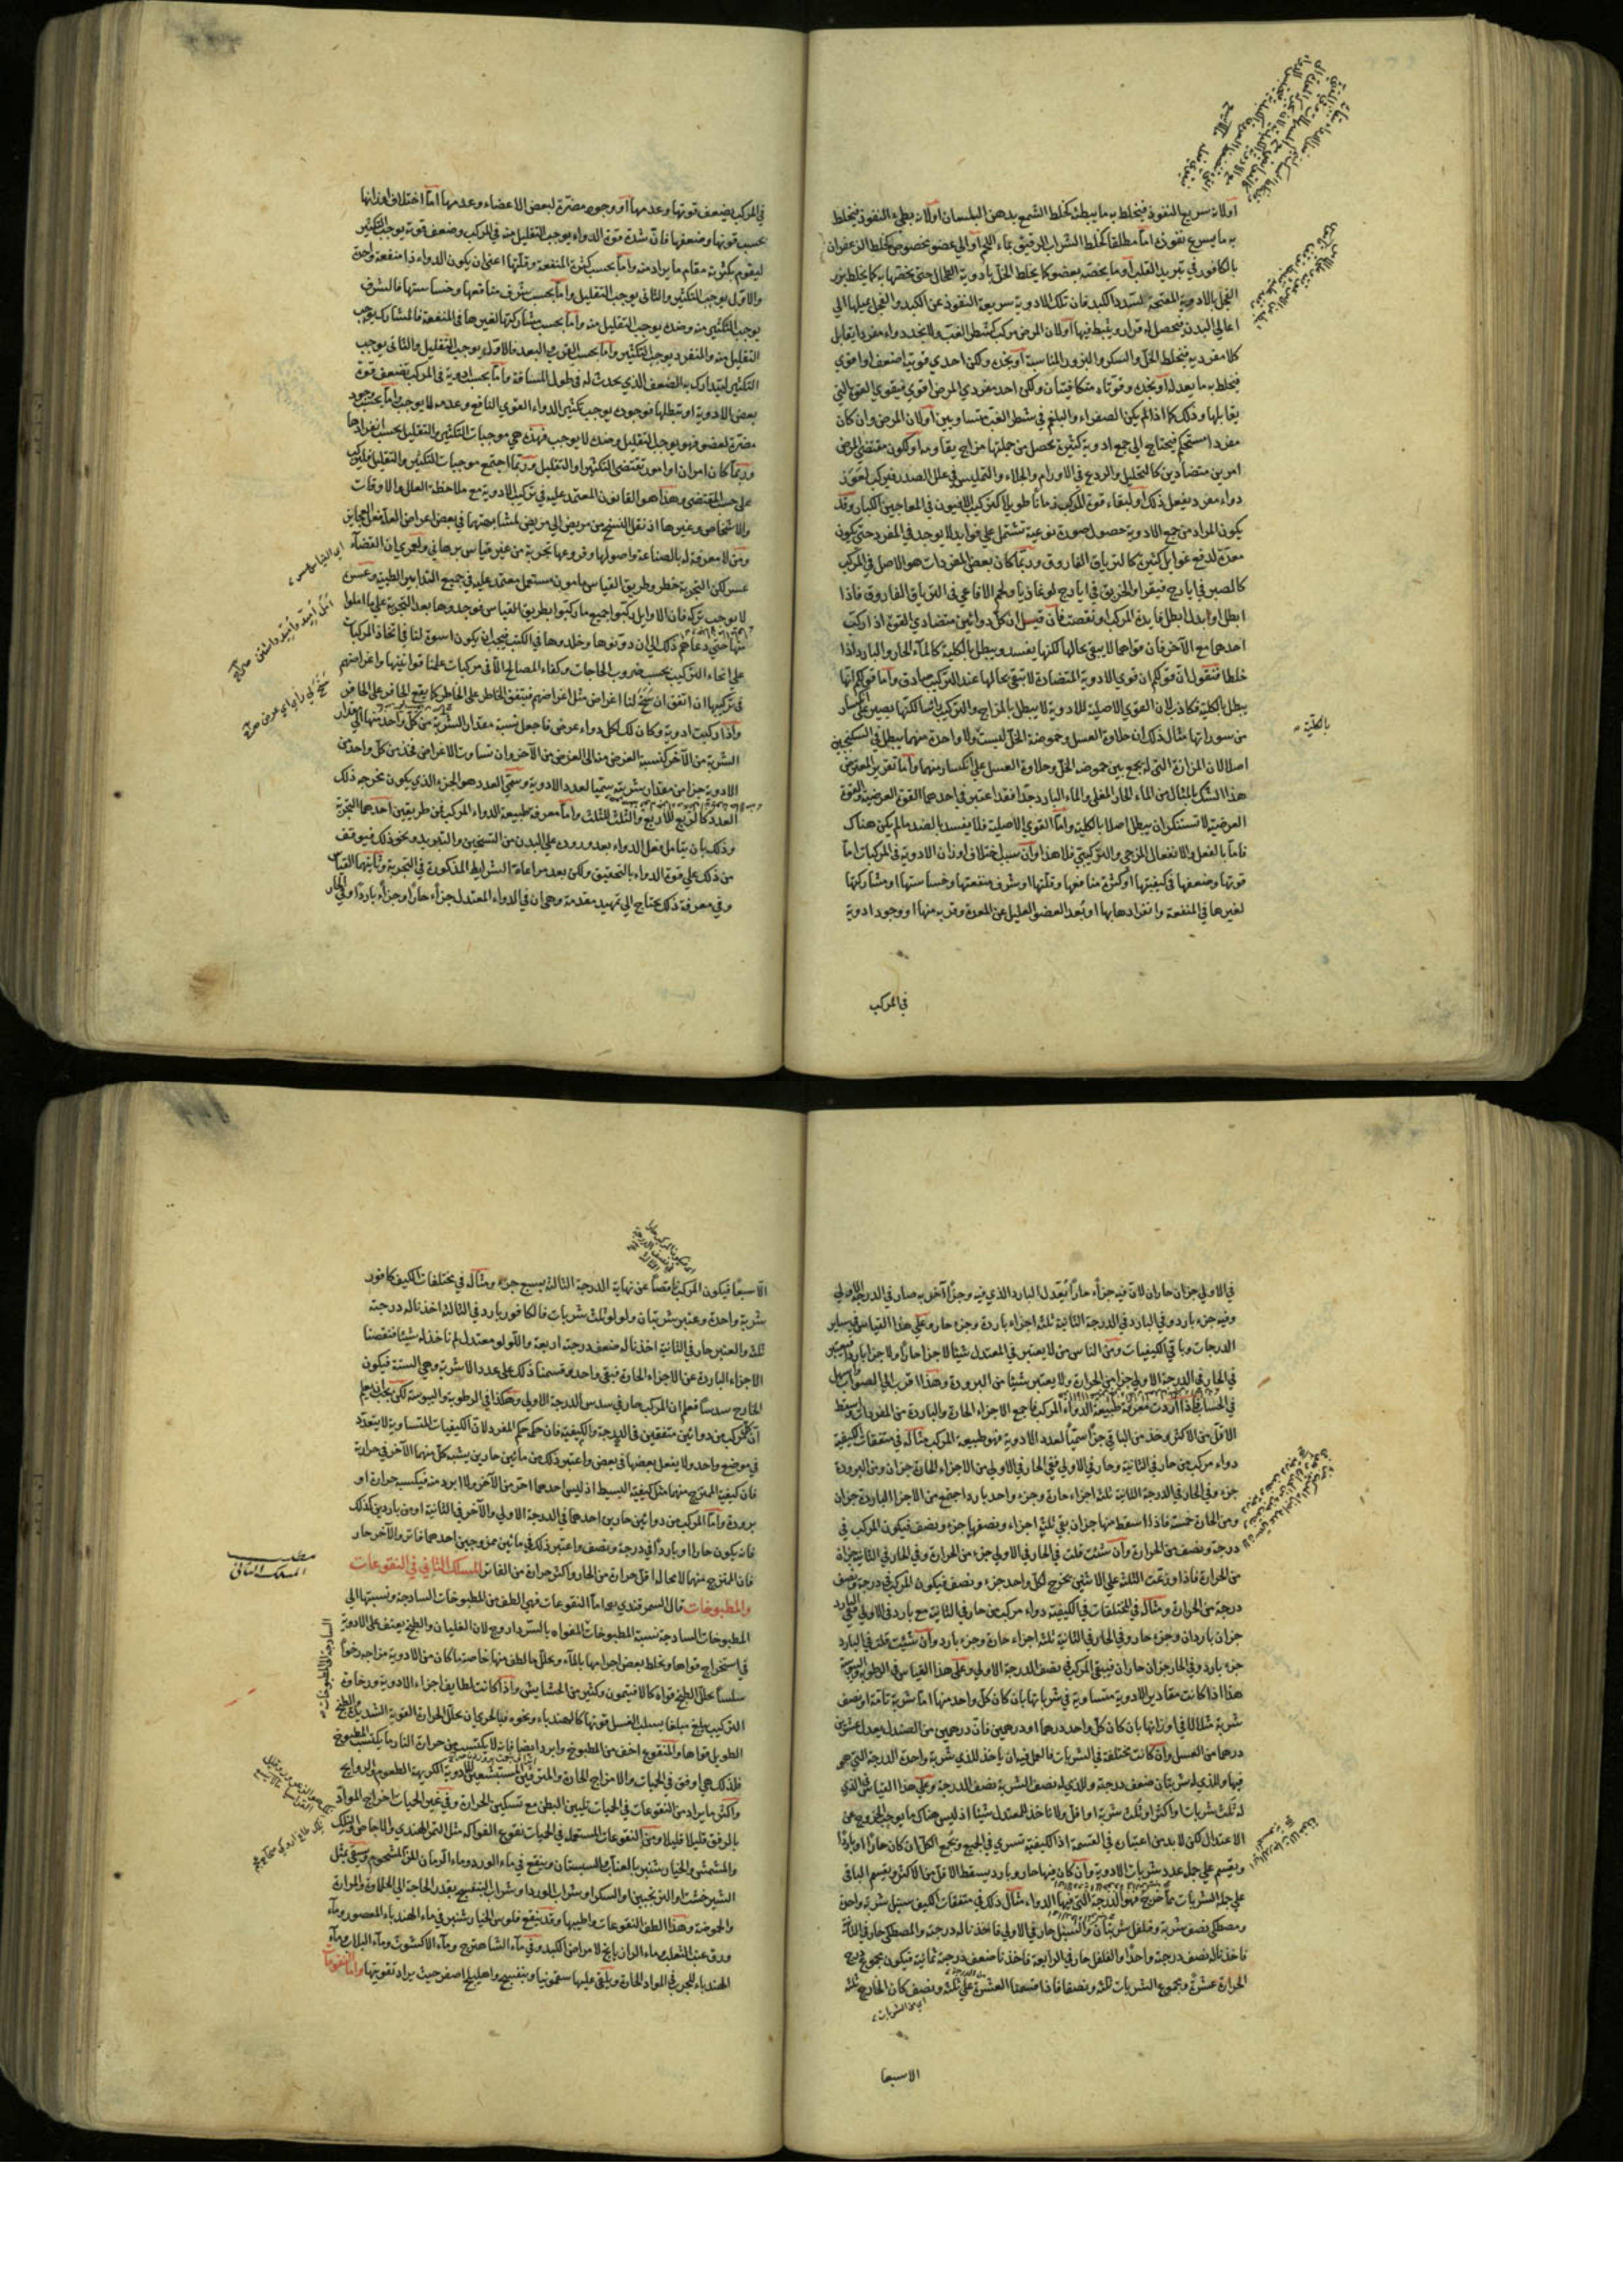 اولانه سريع النفوذ فيخلط به ما يبطئه كخلط الشمع بدهن البلسان اولانه بطيء النفوذ فيخلط
به ما يسرع نفوذه اما مطلقا كخلط الشراب الرقيق بماء اللحم او الي عضو بخصوص كخلط الزعفران
بالكافور في تبريد القلب او ما يخصه بعضو كما يخلط الخل بادوية الطحال حتي يخصها به كما يخلط بزر
الفجل بالادوية المفتحة لسدد الكبد فان تلك الادوية سريعة النفوذ عن الكبد والفجل يميلها الي
اعالي البدن فيحصل له قرار ويثبط فيها اولان المرض مركب كشطر الغب ولا يجد دواء مفردا يقابل
كلا مفرديه فيخلط الخل والسكر والبزور المناسبة او يجده ولكن احدي قوتيه اضعف او اقوي
فيخلط به ما يعدله او يجده وقوتاه متكافيتان ولكن احد مفردي المرض اقوي فيقوي القوة التي
يقابلها وذلك كما اذا لم يكن الصفراء والبلغم في شطر الغب متساويين اولان المرض وان كان
مفردا مستحكم فيحتاج الي جمع ادوية كثيرة يحصل من جملتها مزاج يقاومه او لكون مقتضي المرض
امرين متضادين كالتحليل والردع في الاورام والجلاء والتمليس في علل الصدر فيركب لعوز
دواء مفرد يفعل ذلك او لبقاء قوة المركب زمانا طويلا كتركيب الافيون في المعاجين الكبار وقد
يكون المراد من جمع الادوية حصول صورة نوعية تشتمل علي فوايد لا يوجد في المفرد حتي يكون
معدة لدفع غوايل كثيرة كالترياق الفاروق وربما كان بعض المفردات هو الاصل في المركب
كالصبر في ايارج فيقرا والخربق في ايارج لوغاذيا ولحم الافاعي في الترياق الفاروق فاذا
ابطل او ابدل ابطل فايدة المركب او نقصت فان قيل ان كل دوائين متضادي القوة اذا ركب
احدهما مع الآخر فان قواهما لا يبقي بحالها لكنها يفسد ويبطل بالكلية كالماء الحار والبارد اذا
خلطا فنقول ان قولكم ان قوي الادوية المتضادة لا تبقي بحالها عند التركيب صادق واما قولكم انها
يبطل بالكلية فكاذب لان القوي الاصلية للادوية لا يبطل بالمزاج والتركيب
من سوراتها مثال ذلك ان حلاوة العسل وحموضة الخل ليست ولا واحدة منهما يبطل في السكنجبين
اصلا لان المزازة التي له يجمع بين حموضة الخل وحلاوة العسل علي انكسار منهما واما تقرير المعترض
هذا الشك بالمثال من الماء الحار المغلي والماء البارد جدا فقد اعتبر في احدهما القوة العرضية والقوة
العرضية لا تستنكر ان يبطل اصلا بالكلية واما القوي الاصلية فلا يفسد بالضد ما لم يكن هناك
فاما بالفعل والانفعال المزجي والتركيبي فلا هذا وان سبب اختلاف اوزان الادوية في المركبات اما
قوتها وضعفها في كيفيتها او كثرة منافعها وقلتها او شرف منفعتها وخساستها او مشاركتها
لغيرها في المنفعة وانفرادها بها او بعد العضو العليل عن المعدة وقربه منها او وجود ادوية
في المركب
بالكلية
في المركب يضعف قوتها وعدمها او وجود مضرة لبعض الاعضاء وعدمها اما اختلاف اوزانها
بحسب قوتها وضعفها فان شدة قوة الدواء يوجب التقليل منه في المركب وضعف قوته يوجب التكثير
ليقوم بكثرته مقام ما يراد منه واما بحسب كثرة المنفعة وقلتها اعني ان يكون الدواء ذا منفعة واحدة
والاول يوجب التكثير والثاني يوجب التقليل واما بحسب شرف منافعها وخساستها فالشرف
يوجب التكثير منه وضده يوجب التقليل منه واما بحسب مشاركتها لغيرها في المنفعة فالمشارك يوجب
التقليل منه والمنفرد يوجب التكثير واما بحسب القرب والبعد فالاول يوجب التقليل والثاني يوجب
التكثير ليتدارك به الضعف الذي يحدث له في طول المسافة واما بحسب ادوية في المركب تضعف قوة
بعض الادوية او تبطلها فوجوده يوجب تكثير الدواء القوي النافع وعدمه لا يوجب واما بحسب وجود
مضرة لعضو فهو يوجب التقليل وضده لا يوجب فهذه هي موجبات التكثير والتقليل بحسب انفرادها
وربما كان امران او امور تقتضي التكثير او التقليل وربما اجتمع موجبات التكثير والتقليل فليركب
علي حسب المقتضي وهذا هو القانون المعتمد عليه في تركيب الادوية مع ملاحظة العلل والاوقات
والاشخاص وغيرها اذ نقل النسخ من مريض الي مريض لمشابهتهما في بعض اعراض العلة فعل العجايز
ومن لا معرفة له بالصناعة واصولها وفروعها تجربة من غير قياس برهاني ولعمري ان القضاء
عسر لكن التجربة خطر وطريق القياس مامون مستعمل معتمد عليه في جميع التدابير الطبية وعسره
لا يوجب تركه فان الاوايل ركبوا جميع ما ركبوا بطريق القياس فوجدوها بعد التجربة علي ما املوا
منها حتي دعاهم ذلك الي ان دونوها وخلدوها في الكتب فيجب ان يكون اسوة لنا في اتخاذ المركبات
علي انحاء التركيب بحسب ضروب الحاجات وكفاء المصالح الا في مركبات علمنا قوانينها واغراضهم
في تركيبها ان اتفق ان سنح لنا اغراض مثل اغراضهم فيتفق الخاطر علي الخاطر كما يقع الحافر علي الحافر
واذا ركبت ادوية وكان لك لكل دواء عرض فاجعل نسبة مقدار الشربة من كل واحد منها الي مقدار
الشربة من الآخر كنسبة الغرض منه الي الغرض من الآخر وان تساوت الاغراض فخذ من كل واحد من
الادوية جزءا من مقدار شربته سميا لعدد الادوية وسمي العدد هو الجزء الذي يكون مخرجه ذلك
العدد كالربع للاربع والثلث للثلث واما معرفة طبيعة الدواء المركب فمن طريقين احدهما التجربة
وذلك بان يتامل فعل الدواء بعد وروده علي البدن من التسخين والتبريد ونحو ذلك فيوقف
من ذلك علي قوة الدواء بالتحقيق ولكن بعد مراعاة الشرايط المذكورة في التجربة وثانيهما القياس
وفي معرفة ذلك يحتاج الي تمهيد مقدمة وهي ان في الدواء المعتدل جزأ حارا وجزأ باردا وفي الحار
في الاولي جزءان حاران لان فيه جزأ حارا يعدل البارد الذي فيه وجزأ آخر به صار في الدرجة الاولي
وفيه جزء بارد وفي البارد في الدرجة الثانية ثلثة اجزاء باردة وجزء حار وعلي هذا القياس في ساير
الدرجات وباقي الكيفيات ومن الناس من لا يعتبر في المعتدل شيئا لا جزأ حارا ولا جزأ باردا
في الحار في الدرجة الاولي جزأ من الحرارة ولا يعتبر شيئا من البرودة وهذا اقرب الي الصواب
في الحساب فاذا اردت معرفة طبيعة الدواء المركب فاجمع الاجزاء الحارة والباردة من المفردات واسقط
الاقل من الاكثر وخذ من الباقي جزأ سميا لعدد الادوية فهو طبيعة المركب مثاله في متفقات الكيفية
دواء مركب من حار في الثانية وحار في الاولي ففي الحار في الاولي من الاجزاء الحارة جزءان ومن البرودة
جزء وفي الحار في الدرجة الثانية ثلثة اجزاء حارة وجزء واحد بارد اجتمع من الاجزاء الباردة جزءان
ومن الحارة خمسة فاذا اسقط منها جزءان بقي ثلثة اجزاء ونصفها جزء ونصف فيكون المركب في
درجة ونصف من الحرارة وان شئت قلت في الحار في الاولي جزء من الحرارة وفي الحار في الثانية جزءان
من الحرارة فاذا وزعت الثلثة علي الاثنين يخرج لكل واحد جزء ونصف فيكون المركب في درجة ونصف
درجة من الحرارة ومثاله في المختلفات في الكيفية دواء مركب من حار في الثانية مع بارد في الاولي ففي البارد
جزءان باردان وجزء حار وفي الحار في الثانية ثلثة اجزاء حارة وجزء بارد وان شئت قلت في البارد
جزء بارد وفي الحار جزءان حاران فيبقي المركب في نصف الدرجة الاولي وعلي هذا القياس في الرطوبة واليبوسة
هذا اذا كانت مقادير الادوية متساوية في شرباتها بان كان كل واحد منها اما شربة تامة او نصف
شربة مثلا لا في اوزانها بان كان كل واحد درهما او درهمين فان درهمين من الصندل يعدل عشرين
درهما من العسل وان كانت مختلفة في الشربات فالعمل فيه ان ياخذ للذي شربة واحدة الدرجة التي هو
فيها وللذي له شربتان ضعف درجته وللذي له نصف الشربة نصف الدرجة وعلي هذا القياس في الذي
له ثلث شربات او اكثر او ثلث شربة او اقل ولا ناخذ للمعتدل شيئا اذ ليس هناك ما يوجب الخروج عن
الاعتدال لكن لا بد من اعتباره في القسمة اذ الكيفية تسري في الجميع ويجمع الكل ان كان حارا او باردا
ويقسم علي جملة عدد شربات الادوية وان كان فيها حار وبارد يسقط الاقل من الاكثر ويقسم الباقي
علي جملة الشربات فما خرج فهو الدرجة التي فيها الدواء مثال ذلك في متفقات الكيف سنبل شربة واحدة
ومصطكي نصف شربة وفلفل شربتان والسنبل حار في الاولي فاخذنا له درجة والمصطكي حار في الثانية
فاخذنا له نصف درجته واحدا والفلفل حار في الرابعة فاخذنا ضعف درجته ثمانية فيكون مجموع درج
الحرارة عشرة ومجموع الشربات ثلثة ونصفا فاذا قسمنا العشرة علي ثلثة ونصف كان الخارج ثلثة
الا سبعا
الا سبعا فيكون المركب ناقصا عن نهاية الدرجة الثالثة بسبع جزء ومثاله في مختلفات الكيف كافور
شربة واحدة وعنبر شربتان ولولو ثلث شربات فالكافور بارد في الثالثة اخذنا له درجته
ثلثة والعنبر حار في الثانية اخذنا له ضعف درجته اربعة واللولو معتدل لم ناخذ له شيئا فنقصنا
الاجزاء الباردة عن الاجزاء الحارة فبقي واحد وقسمنا ذلك علي عدد الاشربة وهي الستة فيكون
الخارج سدسا فعلم ان المركب حار في سدس الدرجة الاولي وهكذا في الرطوبة واليبوسة لكن يجب ان يعلم
ان المركب من دوائين متفقين في الدرجة والكيفية فان حكمه حكم المفرد لان الكيفيات المتساوية لا يتعدد
في موضع واحد ولا ينفعل بعضها في بعض واعتبر ذلك من مائين حارين يشبه كل منهما الآخر في حرارته
فان كيفية الممتزج منهما مثل كيفية البسيط اذ ليس احدهما احر من الآخر ولا ابرد منه فيكسبه حرارة او
برودة واما المركب من دوائين حارين احدهما في الدرجة الاولي والآخر في الثانية او من باردين كذلك
فانه يكون حارا او باردا في درجة ونصف واعتبر ذلك في مائين ممزوجين احدهما فاتر والآخر حار
فان الممتزج منهما لا محالة اقل حرارة من الحار واكثر حرارة من الفاتر المسلك الثاني في النقوعات
والمطبوخات قال السمرقندي رحمه الله اما النقوعات فهي الطف من المطبوخات الساذجة ونسبتها الي
المطبوخات الساذجة نسبة المطبوخات المقواة بالسردارو لان الغليان والطبخ يعنف علي الادوية
في استخراج قواها ويخلط بعض اجرامها بالماء ويحلل ما لطف منها خاصة ما كان من الادوية مزاجه رخوا
سلسا يحلل الطبخ قواه كالافتيمون وكثير من الحشايش واذا كانت لطايف اجزاء الادوية ورخاوة
التركيب يبلغ مبلغا يسلب الغسل قوتها كالهندباء ونحوه فبالحري ان يحلل الحرارة القوية الشديدة والطبخ
الطويل قواها والمنقوع اخف من المطبوخ وابرد ايضا فانه لا يكتسب من حرارة النار ما يكتسب المطبوخ
فلذلك هي اوفق في الحميات والامزاج الحارة والمترفين المستبشعين للادوية الكريهة الطعوم والروايح
واكثر ما يراد من النقوعات في الحميات تليين البطن مع تسكين الحرارة وفي غير الحميات اخراج المواد
بالرفق قليلا قليلا ومن النقوعات المستعملة في الحميات نقوع الفواكه مثل التمر الهندي والاجاص
والمشمش والخيارشنبر بالعناب والسبستان وينقع في ماء الورد وماء الرمان المز المشحوم ويسقي بمثل
الشيرخشت او الترنجبين او السكر او شراب الورد او شراب البنفسج بقدر الحاجة الي الحلاوة والمرارة
والحموضة وهذا الطف النقوعات واطيبها وقد ينقع فلوس الخيارشنبر في ماء الهندباء المعصور وماء
ورق عنب الثعلب وماء الرازيانج لامراض الكبد وفي ماء الشاهترج وماء الاكشوث وماء البلاب وماء
الهندباء للجرب في المواد الحارة ويلقي عليها سقمونيا وبنفسج واهليلج اصفر حيث يراد تقويتها واما النقوعات
مطلب
المسلك الثاني